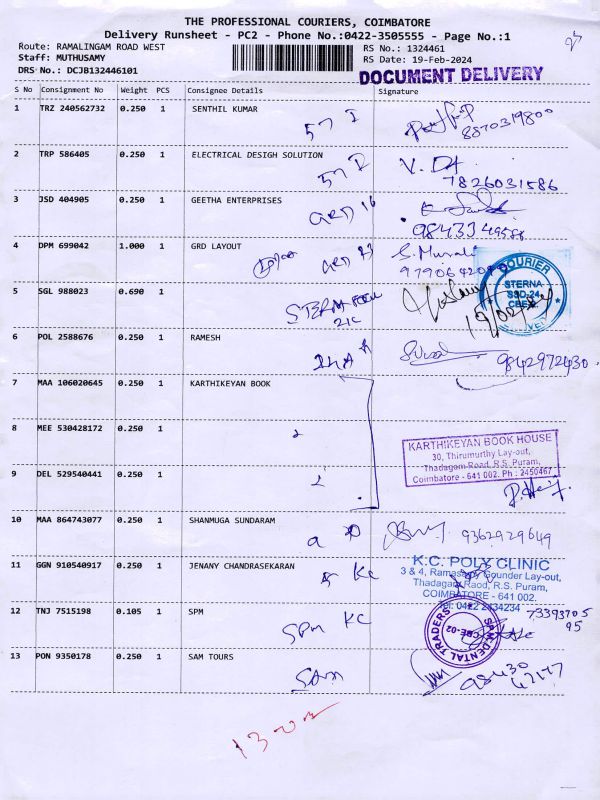 THE PROFESSIONAL COURIERS, COIMBATORE
Delivery Runsheet - PC2 - Phone No.:0422-3505555 - Page No.:1
Route: RAMALINGAM ROAD WEST
RS No.: 1324461
Staff: MUTHUSAMY
RS Date: 19-Feb-2024
DRS No.: DCJB132446101
DOCUMENT DELIVERY
S No Consignment No Weight PCS Consignee Details Signature
1 TRZ 240562732 0.250 1 SENTHIL KUMAR
57 I
8870319800
2 TRP 586405 0.250 1 ELECTRICAL DESIGH SOLUTION
57 I
7826031586
3 JSD 404905 0.250 1 GEETHA ENTERPRISES
GRD 16
4 DPM 699042 1.000 1 GRD LAYOUT
S. Murali
5 SGL 988023 0.690 1
COURIER
STERNA
SSD-24
CBE
6 POL 2588676 0.250 1 RAMESH
9842972430
7 MAA 106020645 0.250 1 KARTHIKEYAN BOOK
8 MEE 530428172 0.250 1
KARTHIKEYAN BOOK HOUSE
30, Thirumurthy Lay-out,
Thadagam Road, R.S. Puram,
Coimbatore - 641 002. Ph : 2450467
9 DEL 529540441 0.250 1
10 MAA 864743077 0.250 1 SHANMUGA SUNDARAM
9362929649
11 GGN 910540917 0.250 1 JENANY CHANDRASEKARAN
KC
K.C. POLY CLINIC
3 & 4, Ramasamy Gounder Lay-out,
Thadagam Raod, R.S. Puram,
COIMBATORE - 641 002.
Tel: 0422 2434234
12 TNJ 7515198 0.105 1 SPM
SPM KC
SPM DENTAL TRADERS
CBE-02
13 PON 9350178 0.250 1 SAM TOURS
SAM